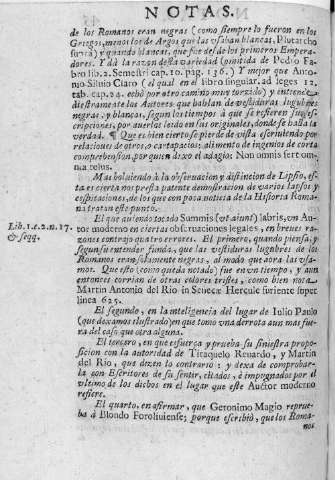 NOTAS.
de los Romanos eran negras (como siempre lo fueron en los
Griegos, menos los de Argos que las usaban blancas, Plutarcho
supra) y quando blancas, que fue desde los primeros Empera-
dores. Y dà la razon desta variedad (omitida de Pedro Fa-
bro lib. 2. Semestri cap. 10. pag. 136.) Y mejor que Anto-
nio Silvio Claro (el qual en el libro singular. ad leges 12.
tab. cap. 24. echò por otro camino muy torzido) y entiende
diestramente los Autores que hablan de vestiduras lugubres
negras, y blancas, segun los tiempos à que se refieren sus des-
cripciones, por averlos leido en sus originales, donde se halla la
verdad. ¶ Que es bien cierto se pierde de vista escriuiendo por
relaciones de otros, o cartapacios, alimento de ingenios de corta
comprehension, por quien dixo el adagio: Non omnis fert om-
nia tellus.
Mas boluiendo à la obseruacion y distincion de Lipsio, es-
ta es cierta nos presta patente demostracion de varios lapsos y
de los que con poca noticia de la Historia Roma-
na tratan este punto.
El que auiendo tocado Summis (vt aiunt) labris, vn Au-
tor moderno en ciertas obseruaciones legales, en breues ra-
zones contrajo quatro errores. El primero, quando piensa, y
segun su entender funda, que las vestiduras lugubres de los
Romanos eran solamente negras, al modo que aora las vsa-
mos. Que esto (como queda notado) fue en vn tiempo, y aun
entonces corrian de otras colores tristes, como bien nota
Martin Antonio del Rio in Senecæ Hercule furiente super
linea 625.
El segundo, en la inteligencia del lugar de Iulio Paulo
(que dexamos ilustrado) en que tomo vna derrota aun mas fue-
ra del caso que otra alguna.
El tercero, en que esfuerça y prueba su siniestra propo-
sicion con la autoridad de Tiraquelo Reuardo, y Martin
del Rio, que dizen lo contrario: y dexa de comprobar-
la con Escritores de su sentir, citados, è impugnados por el
vltimo de los dichos en el lugar que este Auctor moderno
refiere.
El quarto, en afirmar, que Geronimo Magio reprue-
ba à Blondo Foroliuiense; porque escribiò, que los Roma-
nos
Lib. 1. c. 2. n. 17.
& seqq.